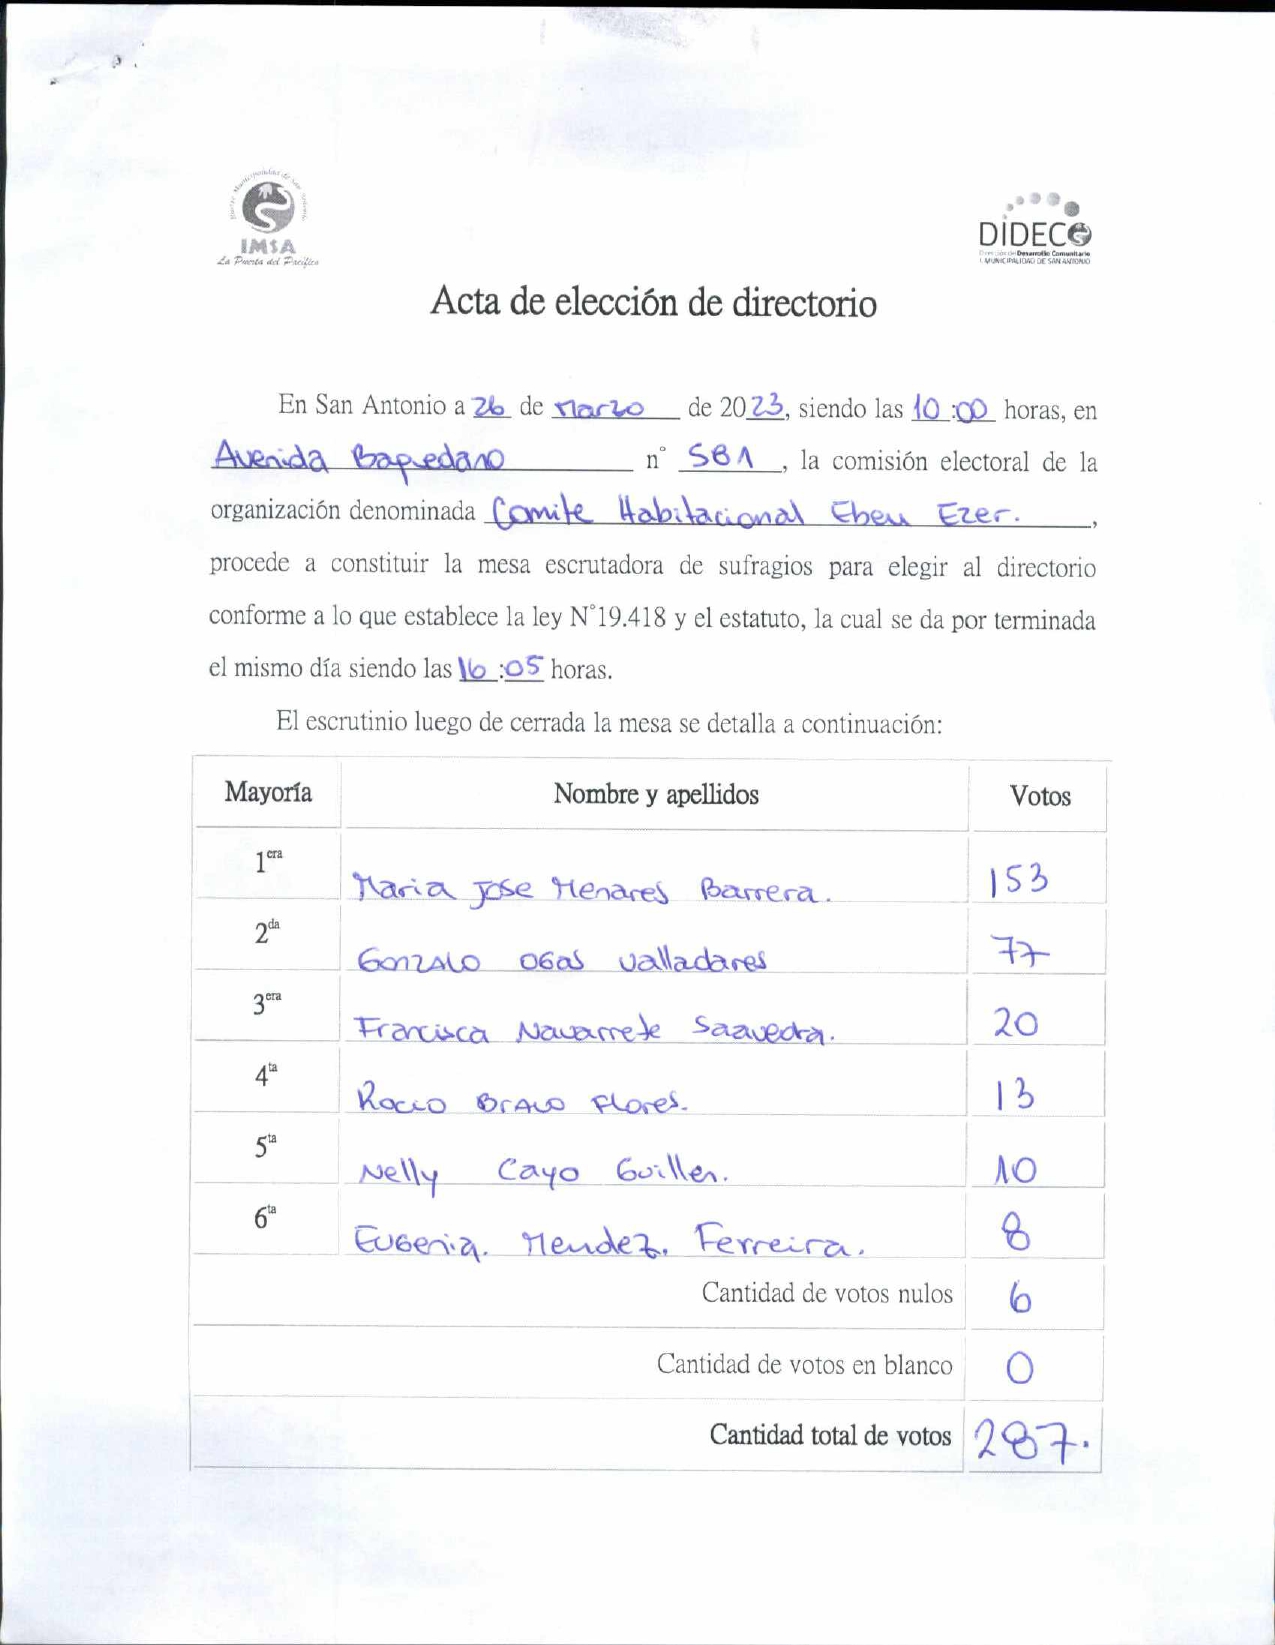 IMSA
La Puerta del Pacífico
DIDECO
Dirección de Desarrollo Comunitario
I. MUNICIPALIDAD DE SAN ANTONIO
Acta de elección de directorio
En San Antonio a 26 de Marzo de 2023, siendo las 10:00 horas, en
Avenida Baquedano n° 581, la comisión electoral de la
organización denominada Comite Habitacional Eben Ezer.,
procede a constituir la mesa escrutadora de sufragios para elegir al directorio
conforme a lo que establece la ley N°19.418 y el estatuto, la cual se da por terminada
el mismo día siendo las 16:05 horas.
El escrutinio luego de cerrada la mesa se detalla a continuación:
Mayoría Nombre y apellidos Votos
1era Maria Jose Henares Barrera. 153
2da Gonzalo Ogas Valladares 77
3era Francisca Navarrete Saavedra. 20
4ta Rocio Bravo Flores. 13
5ta Nelly Cayo Guillen. 10
6ta Eugenia. Mendez. Ferreira. 8
Cantidad de votos nulos 6
Cantidad de votos en blanco 0
Cantidad total de votos 287.